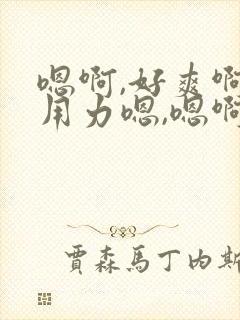 嗯啊,好爽啊
用力嗯,嗯啊
贾森馬丁内斯